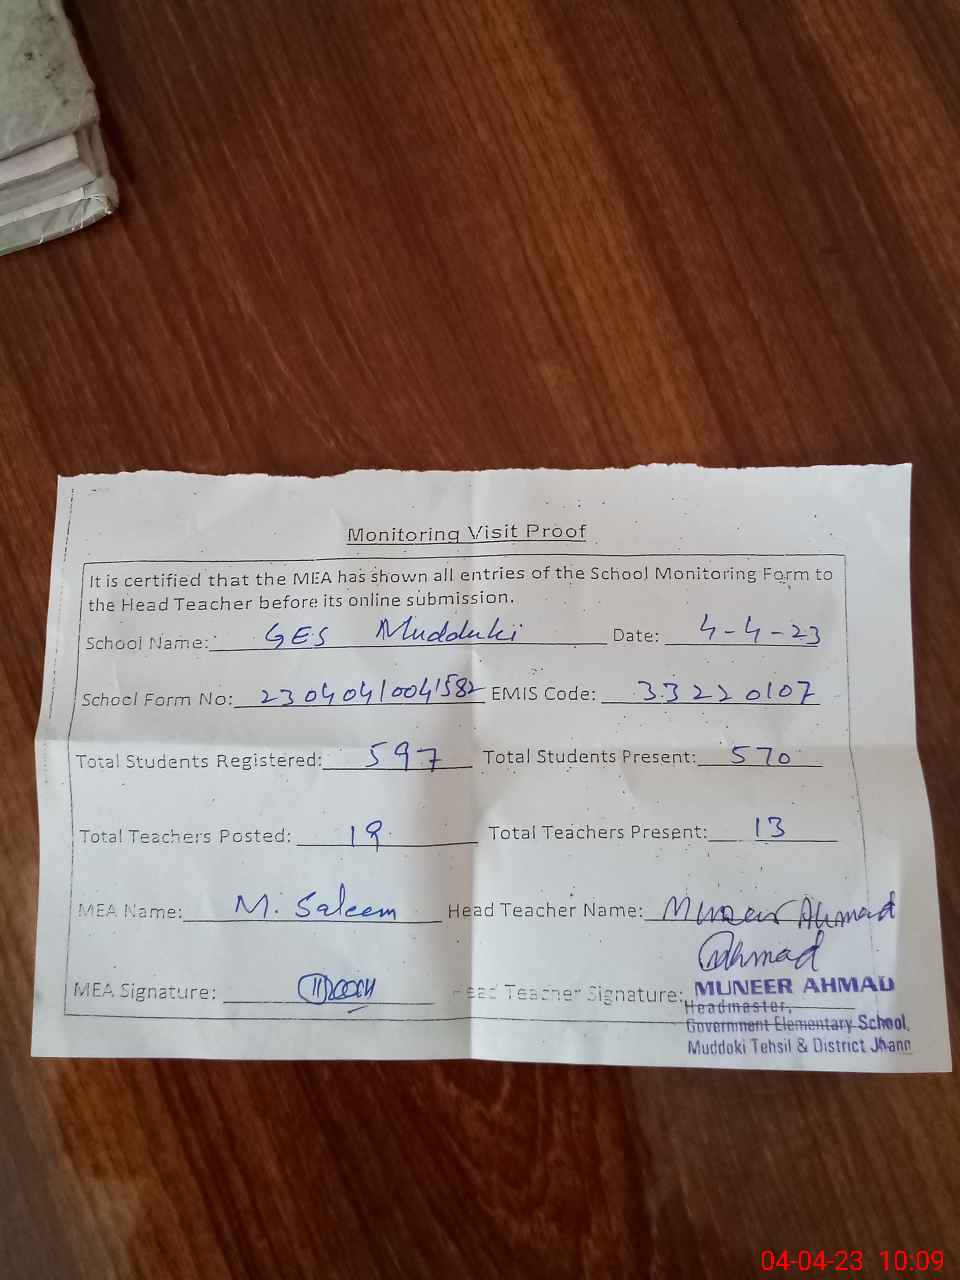 Monitoring Visit Proof
It is certified that the MEA has shown all entries of the School Monitoring Form to
the Head Teacher before its online submission.
School Name: GES Mudduki Date: 4-4-23
School Form No: 23040410041582 EMIS Code: 33220107
Total Students Registered: 597 Total Students Present: 570
Total Teachers Posted: 19 Total Teachers Present: 13
MEA Name: M. Saleem Head Teacher Name: Muneer Ahmad
Ahmad
MEA Signature: Head Teacher Signature: MUNEER AHMAD
Headmaster,
Government Elementary School,
Muddoki Tehsil & District Jhang
04-04-23 10:09